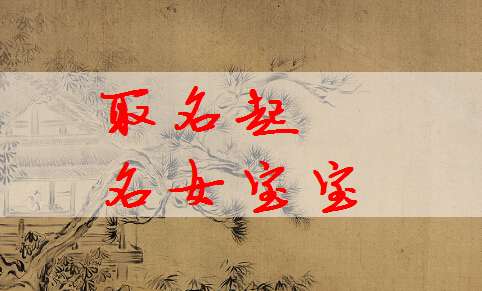 取名起
名女宝宝